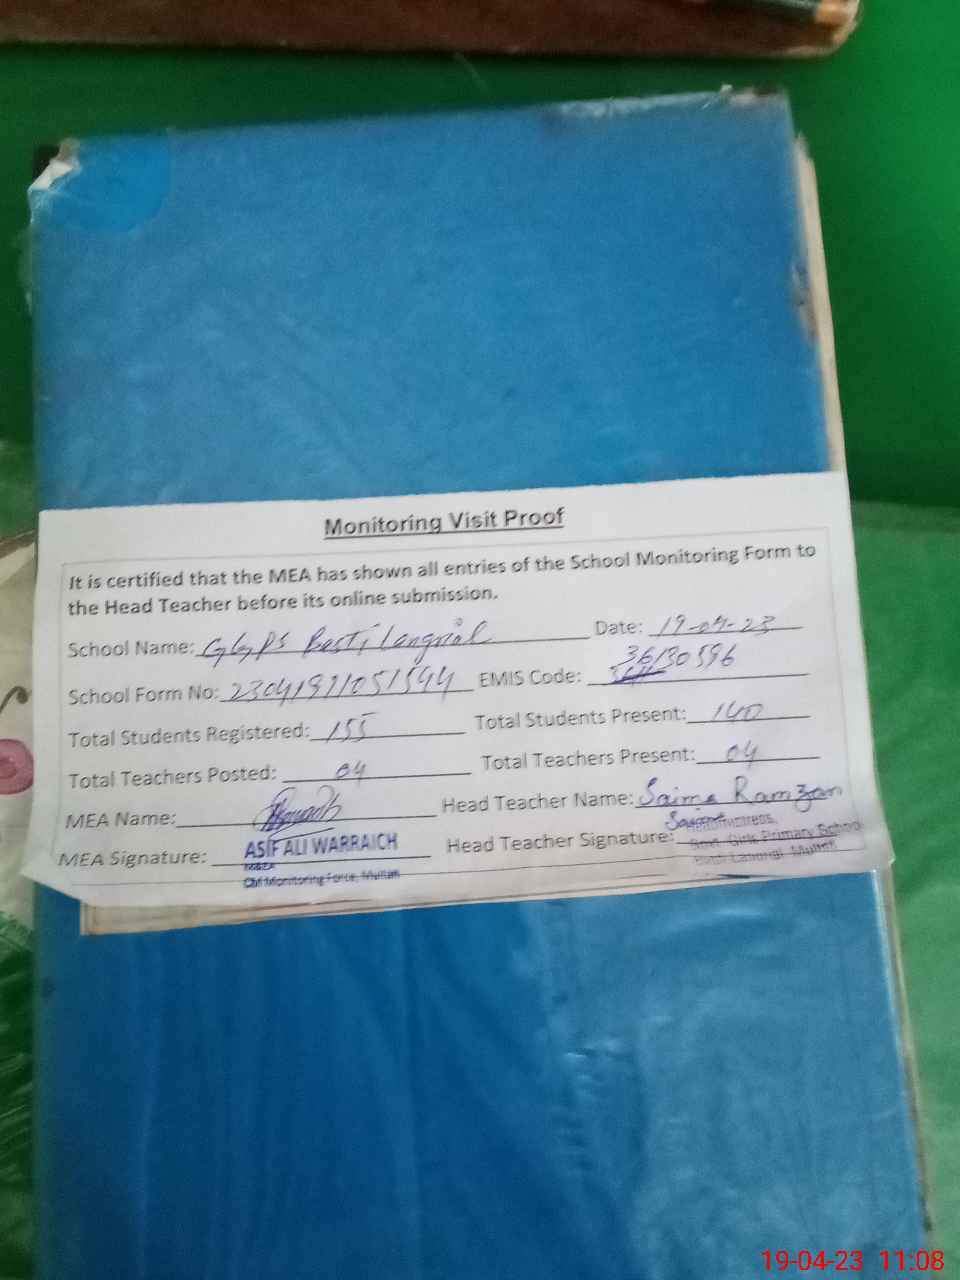 Monitoring Visit Proof
It is certified that the MEA has shown all entries of the School Monitoring Form to
the Head Teacher before its online submission.
School Name: GGPS Basti Langrial Date: 19-04-23
School Form No: 23041911051544 EMIS Code: 36130596
Total Students Registered: 155 Total Students Present: 140
Total Teachers Posted: 04 Total Teachers Present: 04
MEA Name: Head Teacher Name: Saima Ramzan
MEA Signature: ASIF ALI WARRAICH Head Teacher Signature:
Govt. Girls Primary School
M&EA
CM Monitoring Force, Multan
19-04-23 11:08